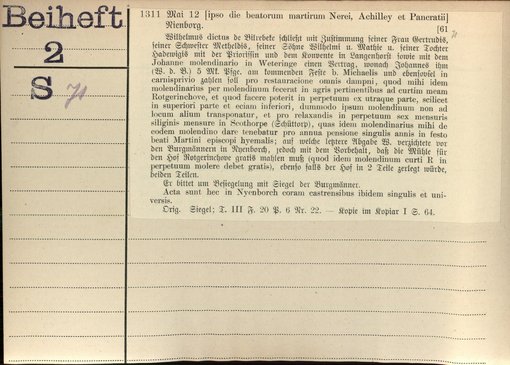 Beiheft
2
S
71
1311 Mai 12 [ipso die beatorum martirum Nerei, Achilley et Pancratii]
Nienborg. [61
71
Wilhelmus dictus de Bilrebeke schließt mit Zustimmung seiner Frau Gertrudis,
seiner Schwester Metheldis, seiner Söhne Wilhelmi u. Mathie u. seiner Tochter
Hadewigis mit der Priorissin und dem Konvente in Langenhorst sowie mit dem
Johanne molendinario in Weteringe einen Vertrag, wonach Johannes ihm
(W. d. B.) 5 Mk. Pfge. am kommenden Feste b. Michaelis und ebensoviel in
carnisprivio zahlen soll pro restauracione omnis dampni, quod mihi idem
molendinarius per molendinum fecerat in agris pertinentibus ad curtim meam
Rotgerinchove, et quod facere poterit in perpetuum ex utraque parte, scilicet
in superiori parte et eciam inferiori, dummodo ipsum molendinum non ad
locum alium transponatur, et pro relaxandis in perpetuum sex mensuris
siliginis mensure in Scothorpe (Schüttorp), quas idem molendinarius mihi de
eodem molendino dare tenebatur pro annua pensione singulis annis in festo
beati Martini episcopi hyemalis; auf welche letztere Abgabe W. verzichtete vor
den Burgmännern in Nyenborch, jedoch mit dem Vorbehalt, daß die Mühle für
den Hof Rotgerinchove gratis mahlen muß (quod idem molendinum curti R in
perpetuum molere debet gratis), ebenso falls der Hof in 2 Teile zerlegt würde,
beiden Teilen.
Er bittet um Besiegelung mit Siegel der Burgmänner.
Acta sunt hec in Nyenborch coram castrensibus ibidem singulis et uni-
versis.
Orig. Siegel; T. III F. 20 P. 6 Nr. 22. — Kopie im Kopiar I S. 64.